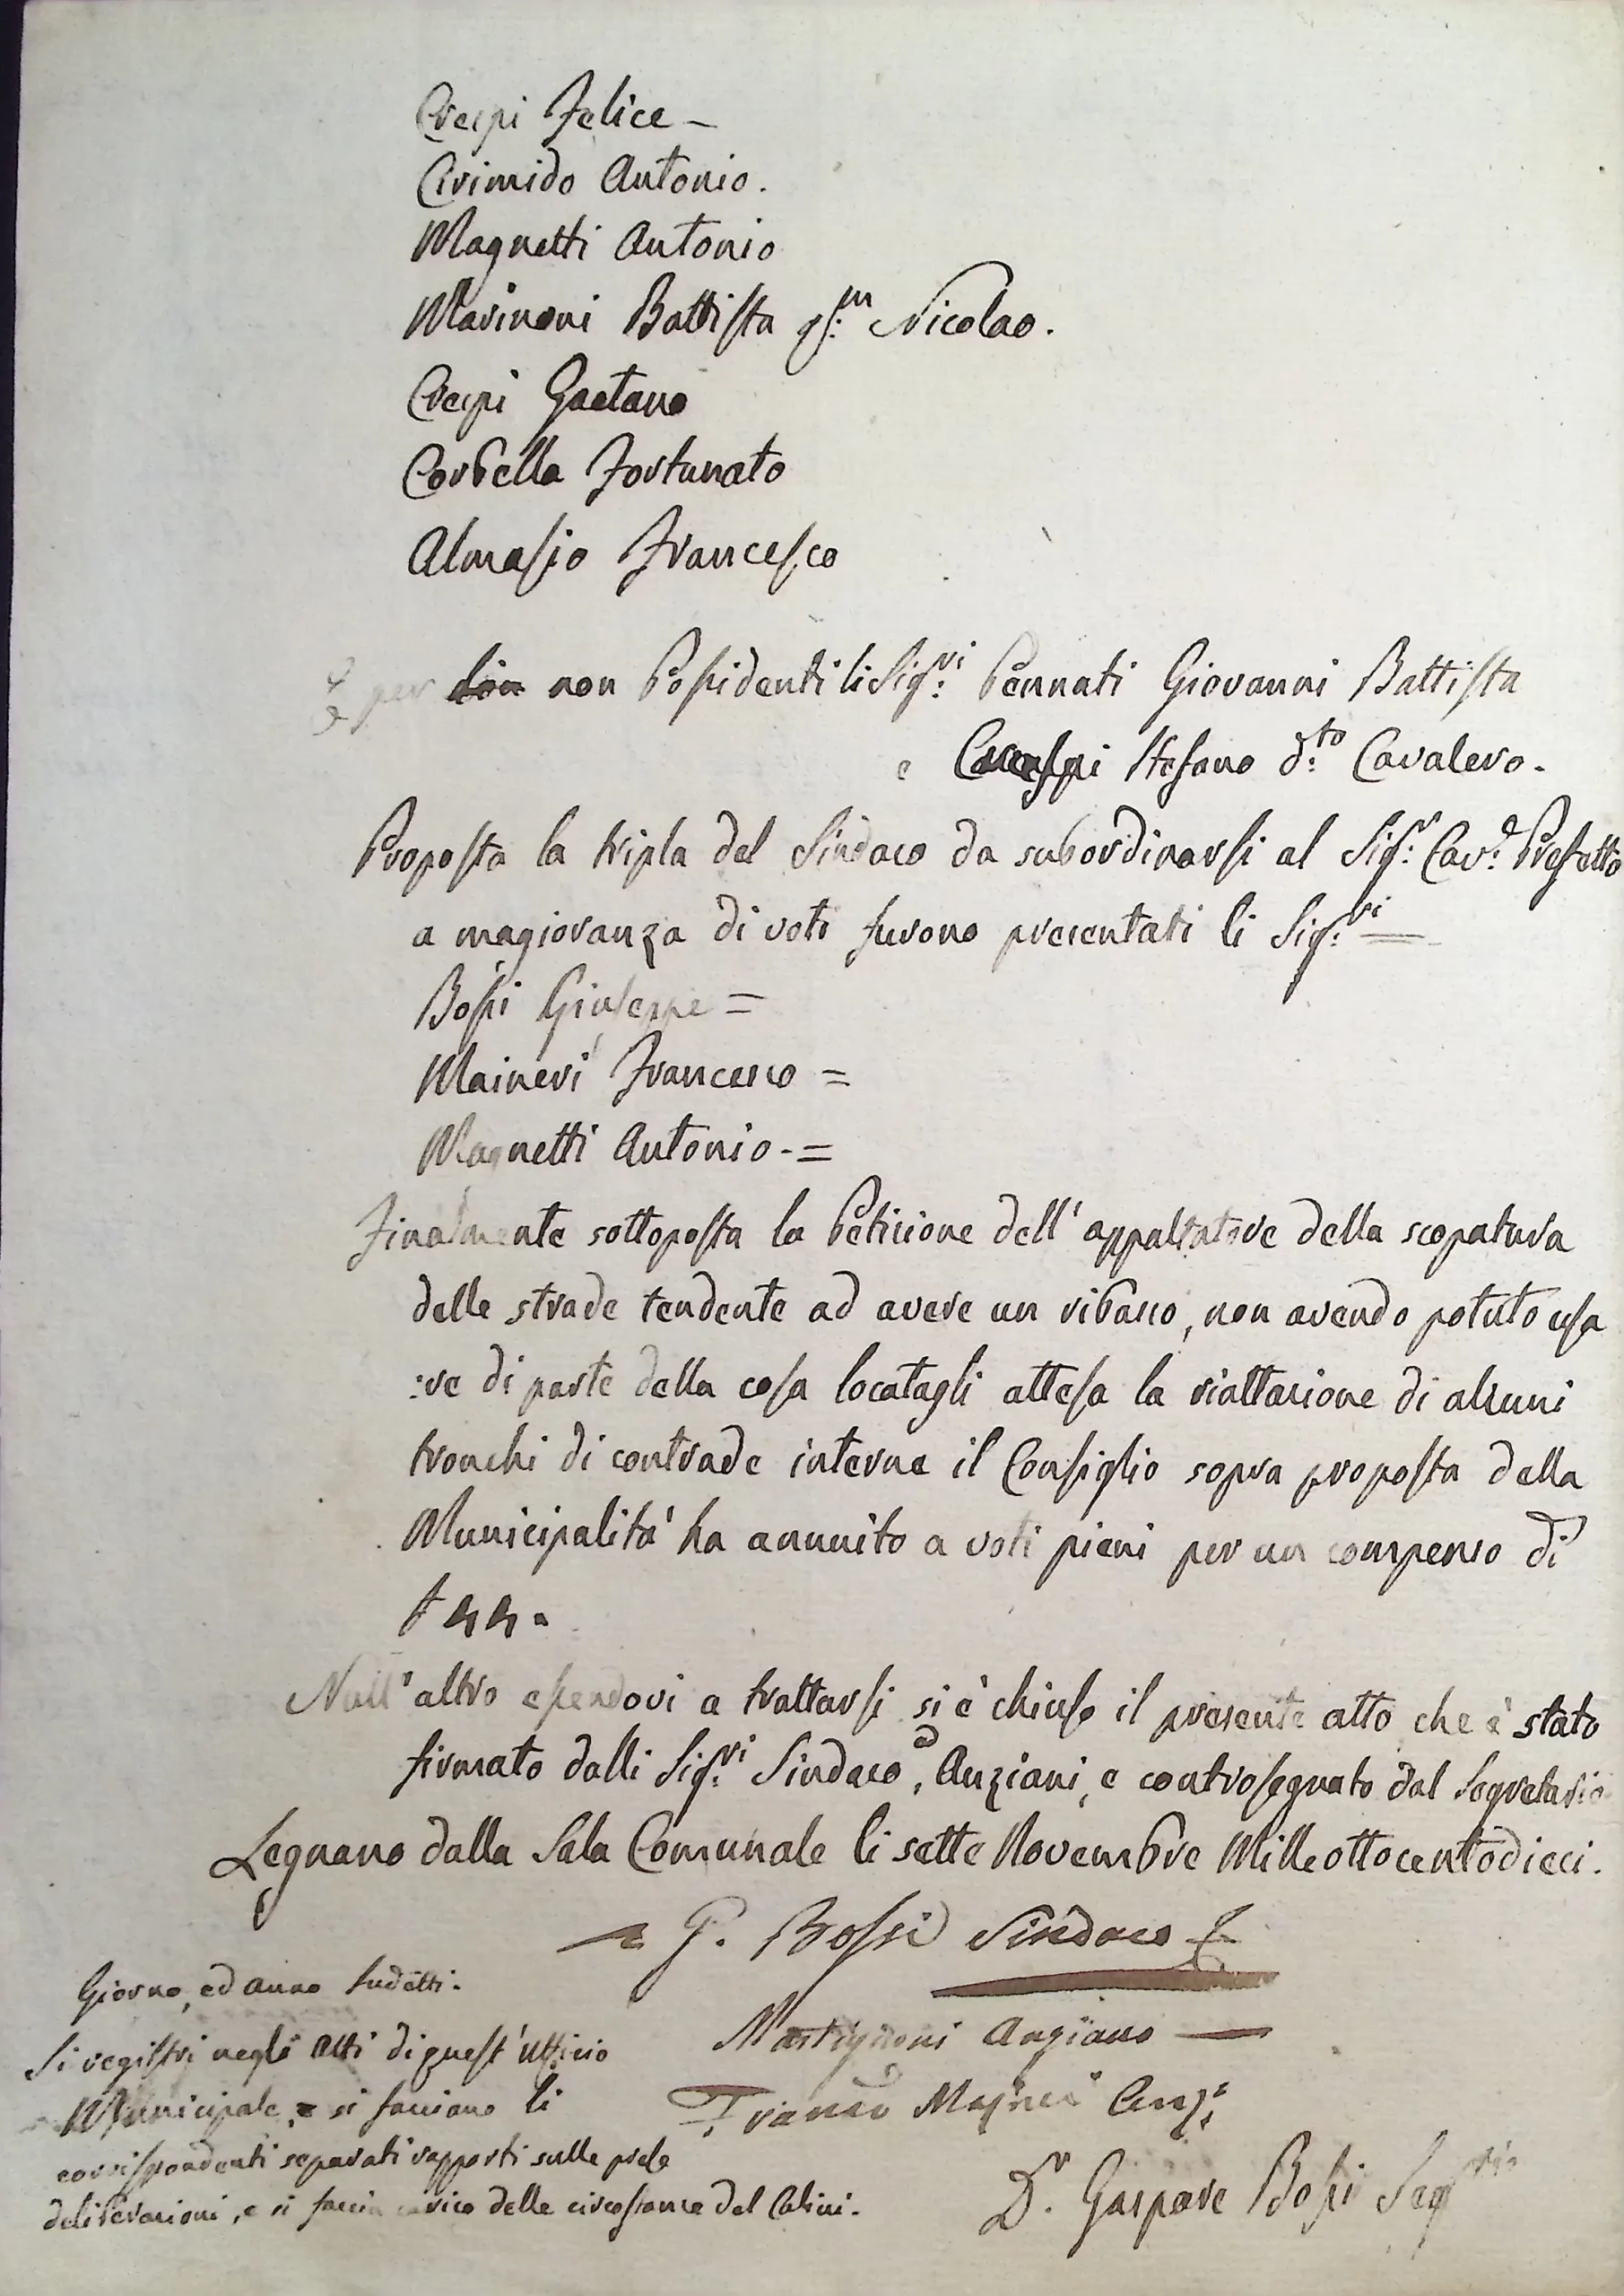 Crespi Felice –
Crimido Antonio.
Magnetti Antonio
Marinoni Battista qm: Nicolao.
Crespi Gaetano
Corbella Fortunato
Almasio Francesco
E per non Possidenti li Sig:ri Pennati Giovanni Battista
e Crespi Stefano d:to Cavalero.
Proposta la tripla del Sindaco da subordinarsi al Sig:r Cav:e Prefetto
a magioranza di voti furono presentati li Sig:ri =
Bossi Giuseppe =
Maineri Francesco =
Magnetti Antonio. =
Finalmente sottoposta la Petizione dell'appaltatore della scopatura
delle strade tendente ad avere un ribasso, non avendo potuto usa
:re di parte della cosa locatagli attesa la riattazione di alcuni
tronchi di contrade interne il Consiglio sopra proposta della
Municipalità ha annuito a voti pieni per un compenso di
44.
Null'altro essendovi a trattarsi si è chiuso il presente atto che è stato
firmato dalli Sig:ri Sindaco, ed Anziani, e controsegnato dal Segretario
Legnano dalla Sala Comunale li sette Novembre Milleottocentodieci.
G. Bossi Sindaco
Giorno, ed anno sudetti.
Mastignoni Anziano —
Si registri negli atti di quest'Ufficio
Municipale, e si facciano li
Franco Maineri Anz:
corrispondenti separati rapporti sulle prese
deliberazioni, e si faccia carico delle circostanze del Calini.
Dr. Gaspare Bossi Segrio